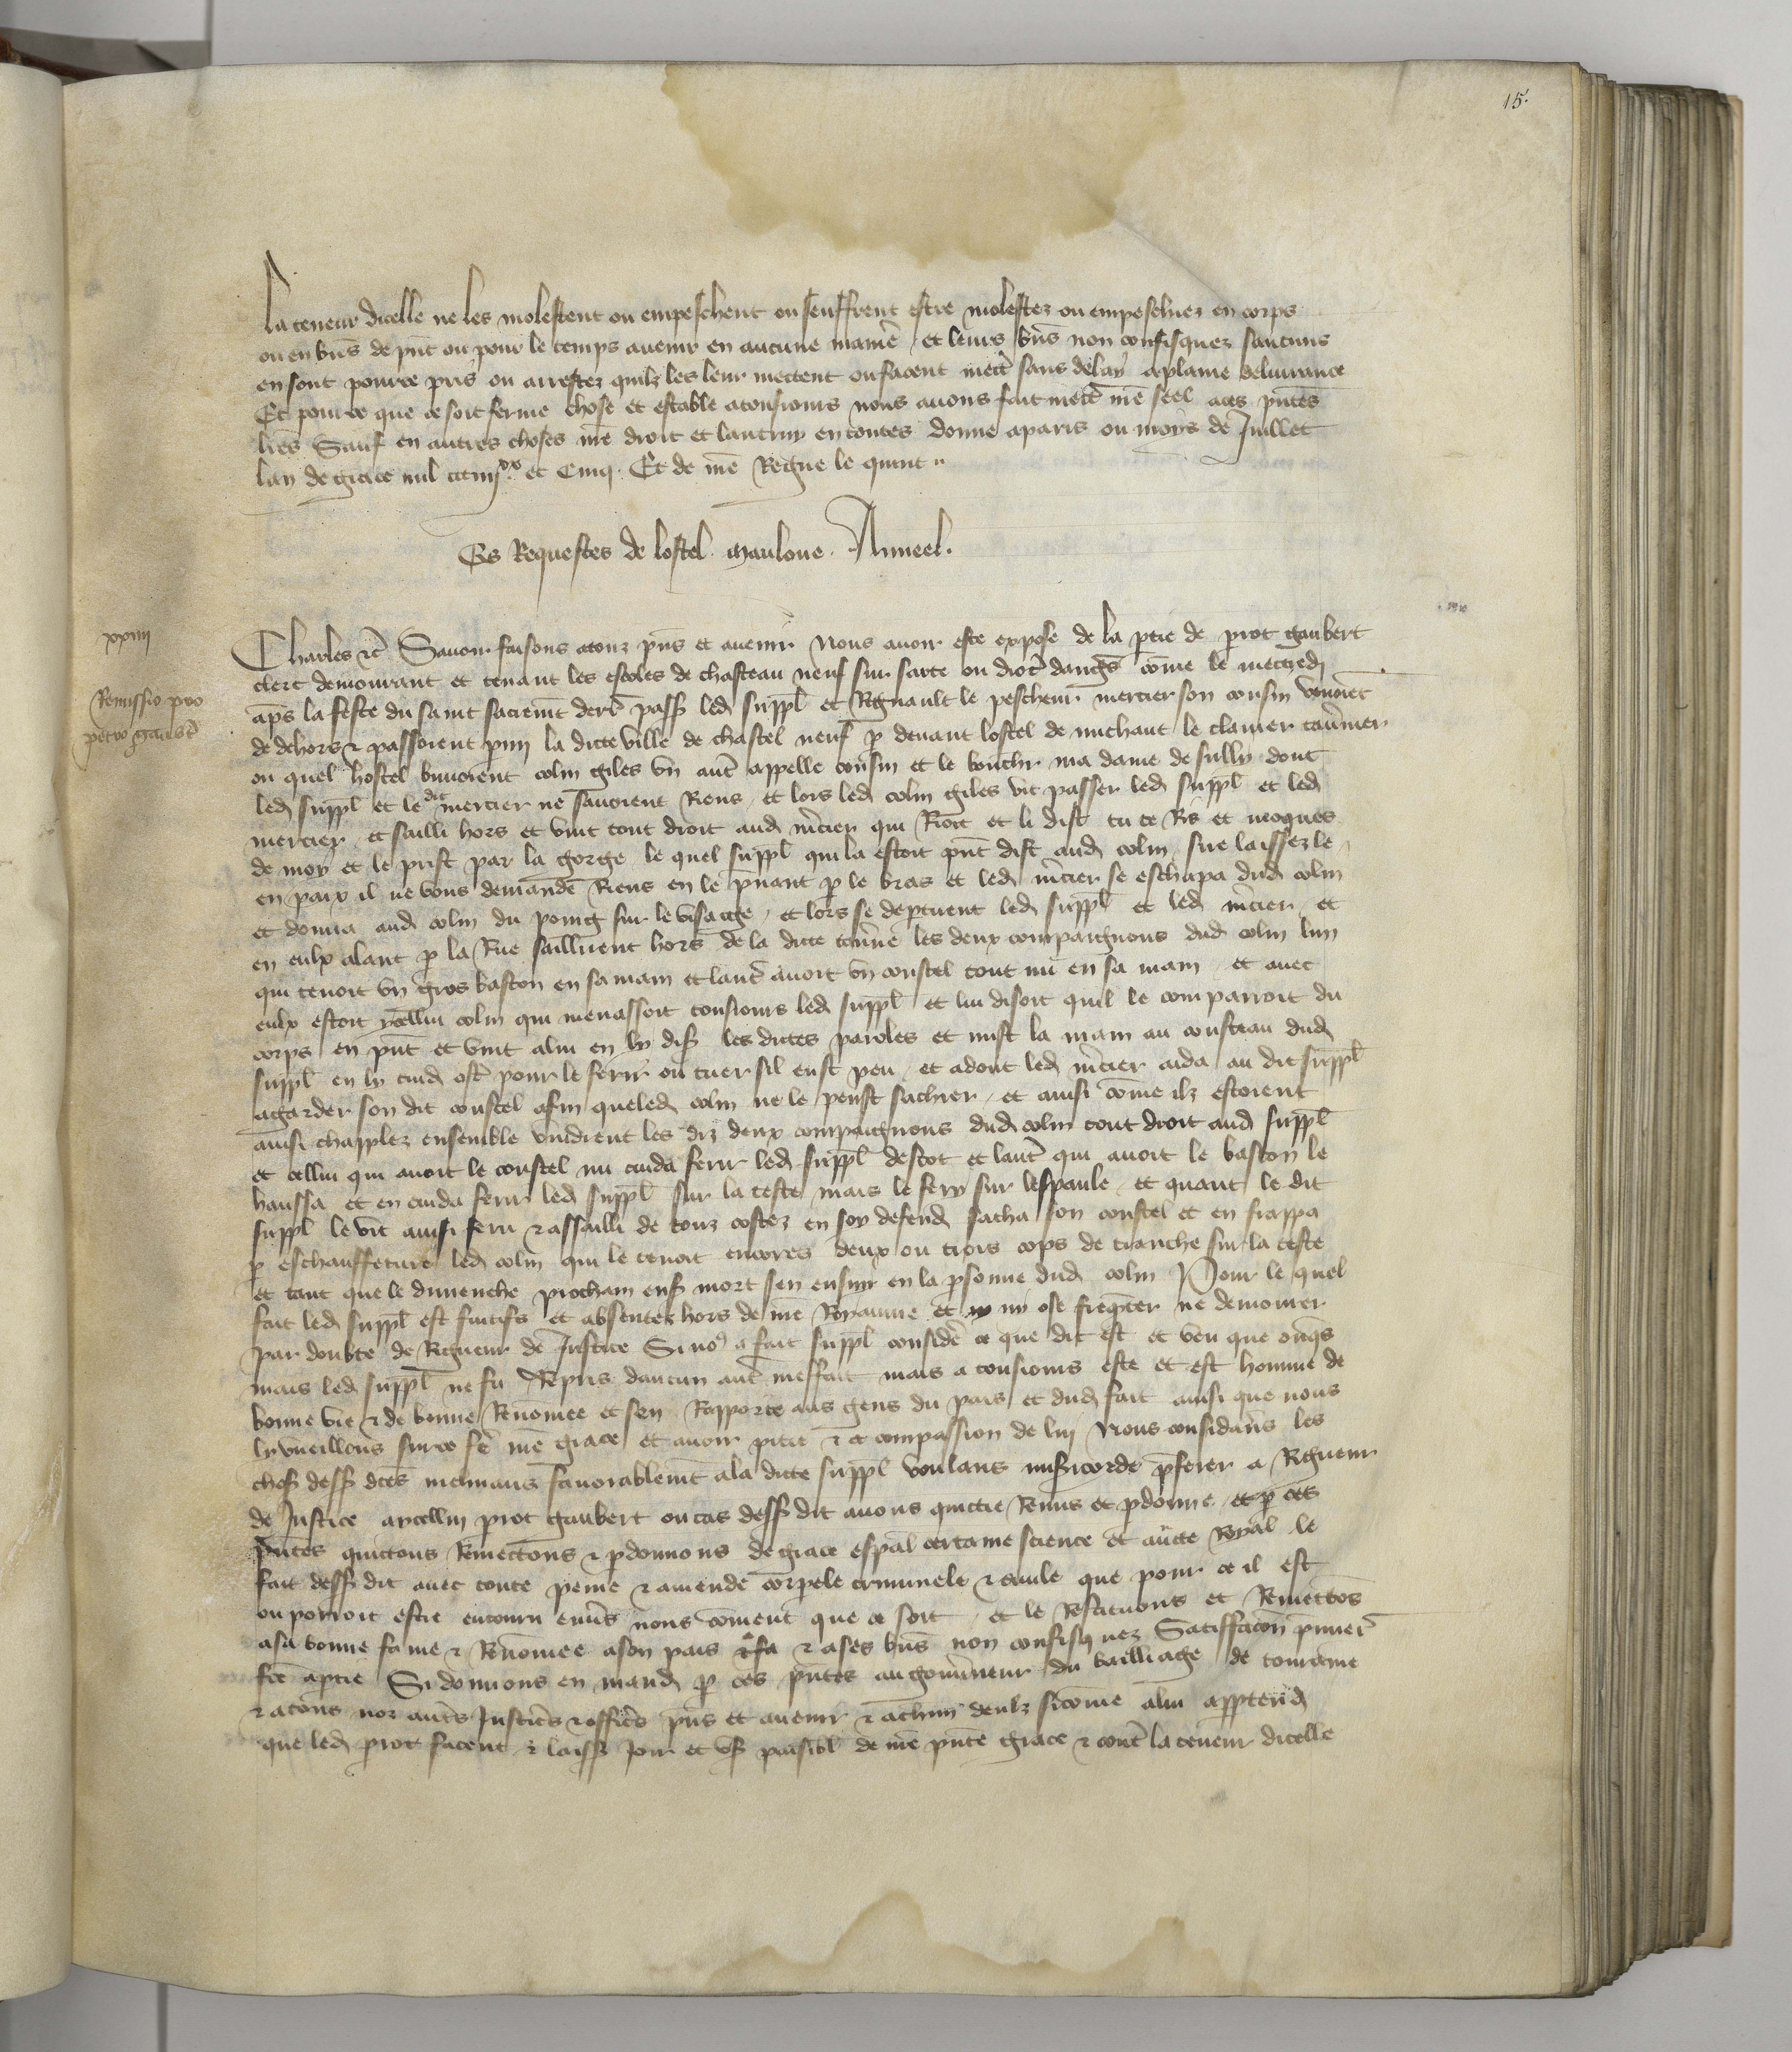 15.
la teneur dicelle ne les molestent ou empeschent ou seuffrent estre molestez ou empeschiez en corps
ou en bñs de pñt ou pour le temps avenir en aucune maniẽ et leurs bñs non confisquez saucuns
en sont pource pris ou arrestez quilz les leur mettent ou facent mectẽ sans delay aplaine delivrance
Et pource que ce soit ferme chose et estable atousiours nous avons fait mectẽ nrẽ seel aces pñtes
lrẽs Sauf en autres choses nrẽ droit et lautruy en toutes donne aparis ou moys de Juillet
lan de grace mil ccc iiijxx et Cinq. Et de nrẽ Regne le quint
Es Requestes de lostel. Mauloue. Anneel.
xxiiij
Remissio pro
petro gaubẽt
Charles etc̃ Savoir faisons atouz pñs et avenir Nous avoir este expose de la ptie de prot gaubert
clerc demourant et tenant les escoles de chasteau neuf sur sarte ou dioc̃ dangs̃ cõme le mecredj
aps̃ la feste du saint sacremt̃ derr̃ pass̃ led suppl̃ et Regnault le pescheur mercier son cousin venoiẽt
de dehors & passoient pmy la dicte ville de chastel neuf p devant lostel de michaut le clavier tav̾nier
ou quel hostel buvoient colin giles vn autẽ appelle cousin et le bouchr̃ ma dame de sully dont
led suppl̃ et le dit mercier ne savoient Riens et lors led colin giles vit passer led suppl̃ et led
mercier et sailli hors et vint tout droit aud m̾cier qui Rioit et li dist tu te Ris et moques
de moy et le prist par la gorge le quel suppl̃ qui la estoit pñt dist aud colin sire laissez le
en paix il ne vous demandẽ Riens en le pñant p le bras et led m̾cier se eschapa dud colin
et donna aud colin du poing sur le visaige et lors se deptirent led suppl̃ et led m̾cier et
en eulx alant p la Rue saillirent hors de la dicte tav̾ne les deux compaignons dud colin lun
qui tenoit vn gros baston en sa main et lautẽ avoit vn coustel tout nu en sa main et avec
eulx estoit ycellui colin qui menassoit tousiours led suppl̃ et lui disoit quil le comparroit du
corps en pñt et vint alui en ly dis̃ les dictes paroles et mist la main au cousteau dud
suppl̃ en ly cuid ostẽ pour le ferir ou tuer sil eust peu et adont led m̾cier aida au dit suppl̃
agarder son dit coustel afin queled colin ne le peust sachier et ainsi cõme ilz estoient
ainsi chapplez ensemble vindrent les diz deux compaignons dud colin tout droit aud suppl̃
et cellui qui avoit le coustel nu cuida ferir led suppl̃ destot et lautẽ qui avoit le baston le
haussa et en cuida ferir led suppl̃ sur la teste mais le fery sur lespaule et quant le dit
suppl̃ le vit ainsi feru & assailli de touz costez en soy defend sacha son coustel et en frappa
p eschauffeture led colin qui le tenoit encores deux ou trois cops de tranche sur la teste
et tant que le dimenche prochain ens̃ mort sen ensuy en la psonne dud colin Pour le quel
fait led suppl̃ est fuitifs et absentez hors de nrẽ Royaume et ny ose freqnter ne demourer
par doubte de Rigueur de Justice Si no9 a fait suppl̃ considẽ ce que dit est et veu que onqs̃
mais led suppl̃ ne fu Repris daucun autẽ meffait mais a tousiours este et est homme de
bonne vie & de bonne Renõmee et sen Rapporte aus gens du pais et dud fait ainsi que nous
ly vueillons surce fẽ nrẽ grace et avoir pitie & compassion de luj Nous considãns les
chos̃ dess̃ dc̃es inclinans favorablemt̃ ala dicte suppl̃ voulans miscorde pferer a Rigueur
de Justice aycellui prot gaubert oucas dess̃ dit avons quictie Remis et pdonne et p ces
pñtes quictons Remectons & pdonnons de grace espal̃ certaine science et auc̃te Royal le
fait dess̃ dit avec toute peine & amende corpele criminele & civile que pour ce il est
ou porroit estre encouru envs̃ nous cõment que ce soit et le Restituons et Remettõs
asa bonne fame & Renõmee ason pais & ases bñs non confisquez Satisfaccõn pmier̃
fc̃e aptie Si donnons en mand p ces pñtes au gouv̾neur du bailliage de touraine
& atous noz autẽs Justicĩs & officĩs pñs et avenir & achun deulz sicõme alui apptend
que led prot facent & laiss̃ Jour et us̃ paisibl̃ de nrẽ pñte grace & contẽ la teneur dicelle